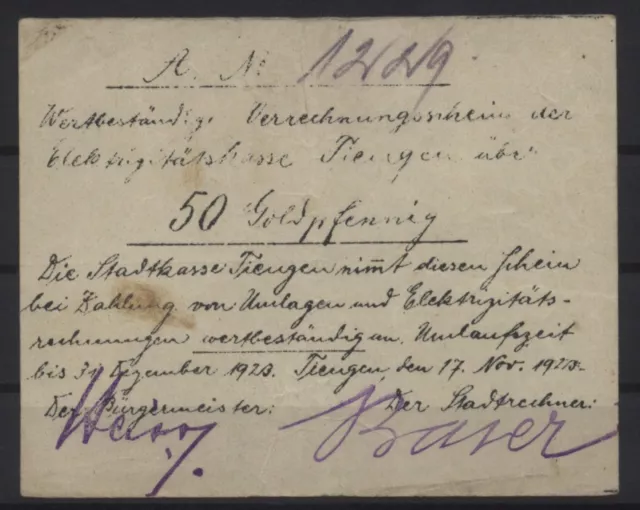 A. No 12229
Wertbeständige Verrechnungsschein der
Elektrizitätskasse Tiengen über
50 Goldpfennig
Die Stadtkasse Tiengen nimmt diesen Schein
bei Zahlung von Umlagen und Elektrizitäts-
rechnungen wertbeständig an. Umlaufszeit
bis 31 Dezember 1923. Tiengen, den 17. Nov. 1923.
Der Bürgermeister: Der Stadtrechner: